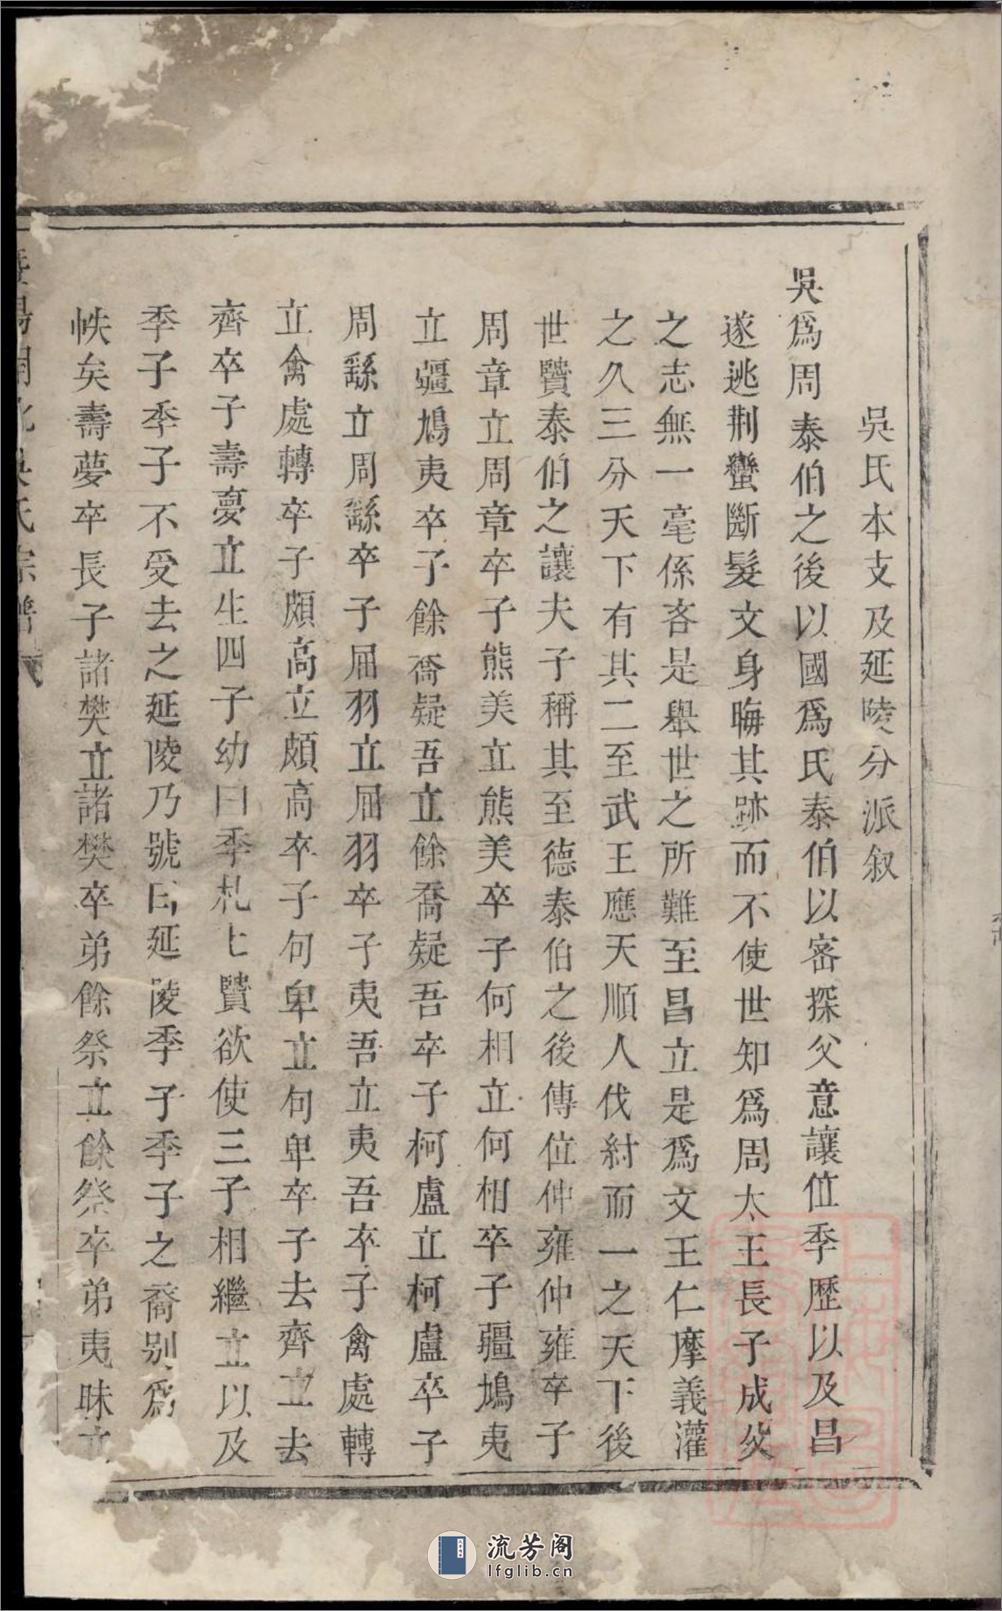 吳氏本支及延陵分派叙
吳爲周泰伯之後以國爲氏泰伯以密探父意讓位季歷以及昌
遂逃荆蠻斷髮文身晦其跡而不使世知爲周太王長子成父
之志無一毫係吝是舉世之所難至昌立是爲文王仁摩義灌
之久三分天下有其二至武王應天順人伐紂而一之天下後
世贒泰伯之讓夫子稱其至德泰伯之後傳位仲雍仲雍卒子
周章立周章卒子熊美立熊美卒子何相立何相卒子疆鳩夷
立疆鳩夷卒子餘喬疑吾立餘喬疑吾卒子柯盧立柯盧卒子
周繇立周繇卒子屈羽立屈羽卒子夷吾立夷吾卒子禽處轉
立禽處轉卒子頗高立頗高卒子句卑立句卑卒子去齊立去
齊卒子壽夣立生四子幼曰季札上贒欲使三子相繼立以及
季子季子不受去之延陵乃號曰延陵季子季子之裔别爲
帙矣壽夢卒長子諸樊立諸樊卒弟餘祭立餘祭卒弟夷昧立
吳氏宗譜
流芳阁
lfglib.cn